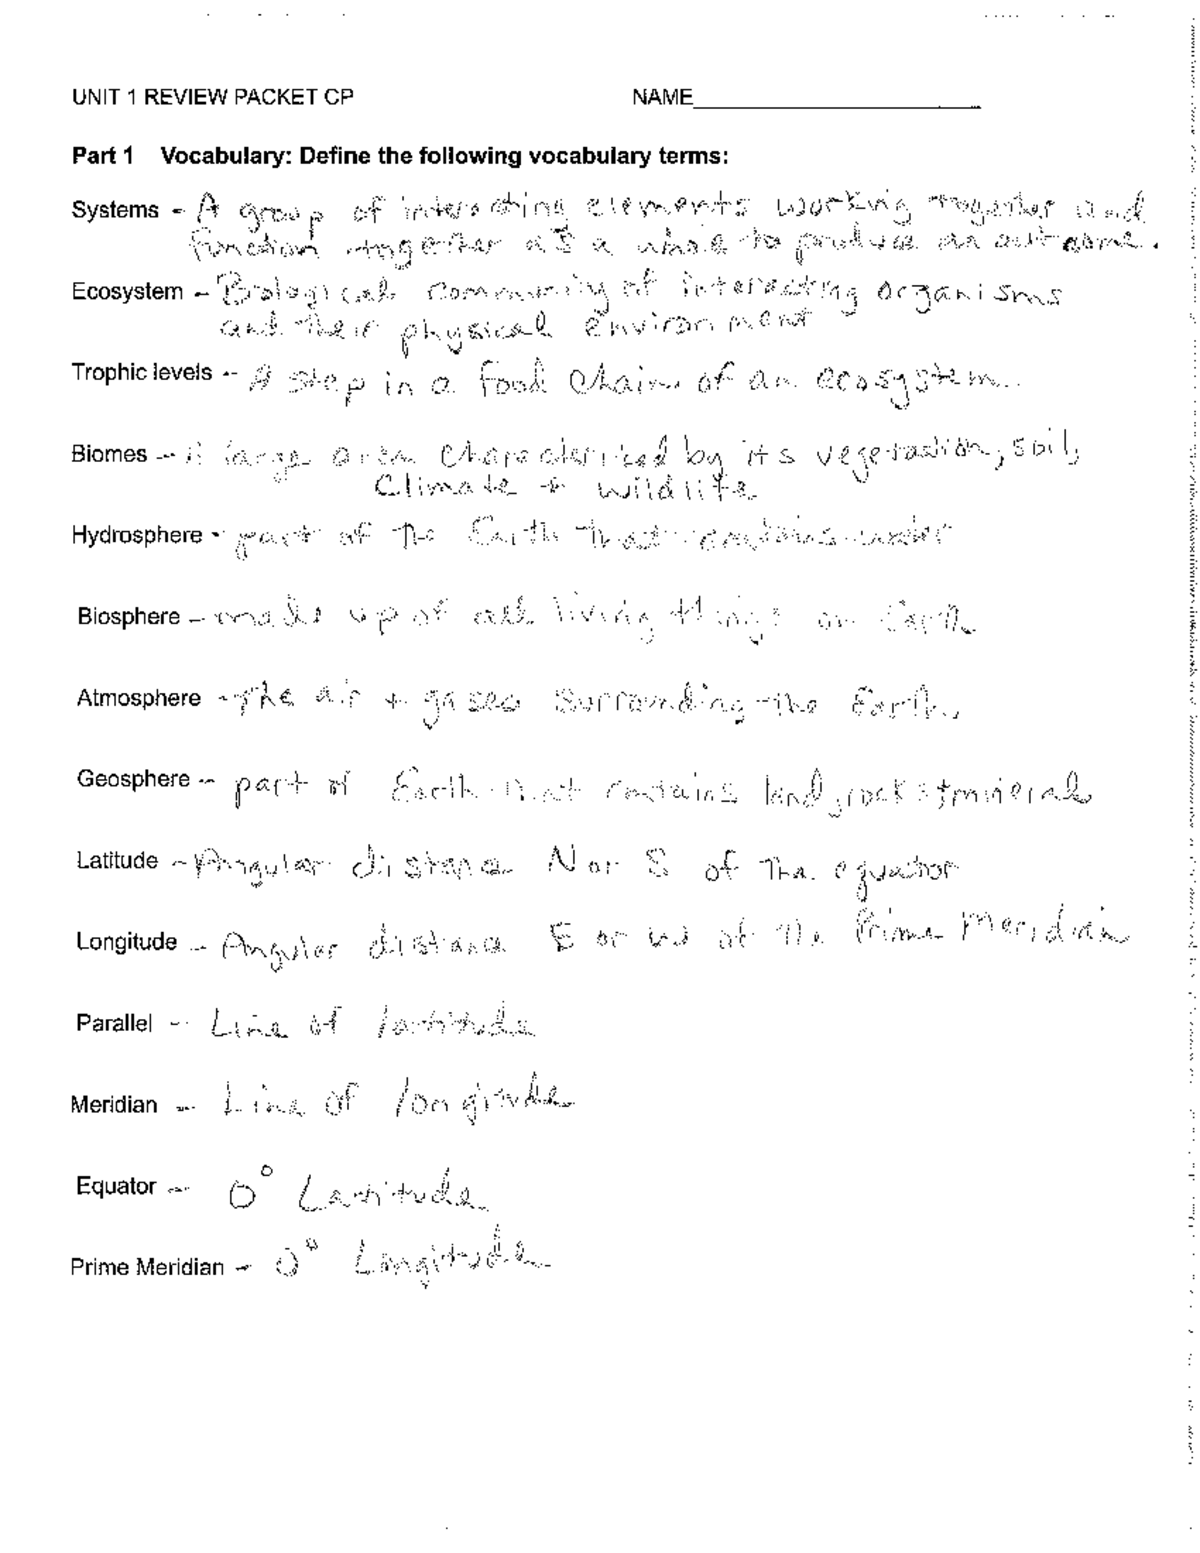 UNIT 1 REVIEW PACKET CP NAME
Part 1 Vocabulary: Define the following vocabulary terms:
Systems - A group of interacting elements working together and
function together as a whole to produce an outcome.
Ecosystem - Biological community of interacting organisms
and their physical environment
Trophic levels - A step in a food chain of an ecosystem.
Biomes - A large area characterized by its vegetation, soil,
Climate + wildlife
Hydrosphere - part of the Earth that contains water
Biosphere - made up of all living things on Earth
Atmosphere - The air + gases surrounding the Earth.
Geosphere - part of Earth that contains land, rocks + minerals
Latitude - Angular distance N or S of the equator
Longitude - Angular distance E or W of the Prime Meridian
Parallel - Line of latitude
Meridian - Line of longitude
Equator - 0° Latitude
Prime Meridian - 0° Longitude